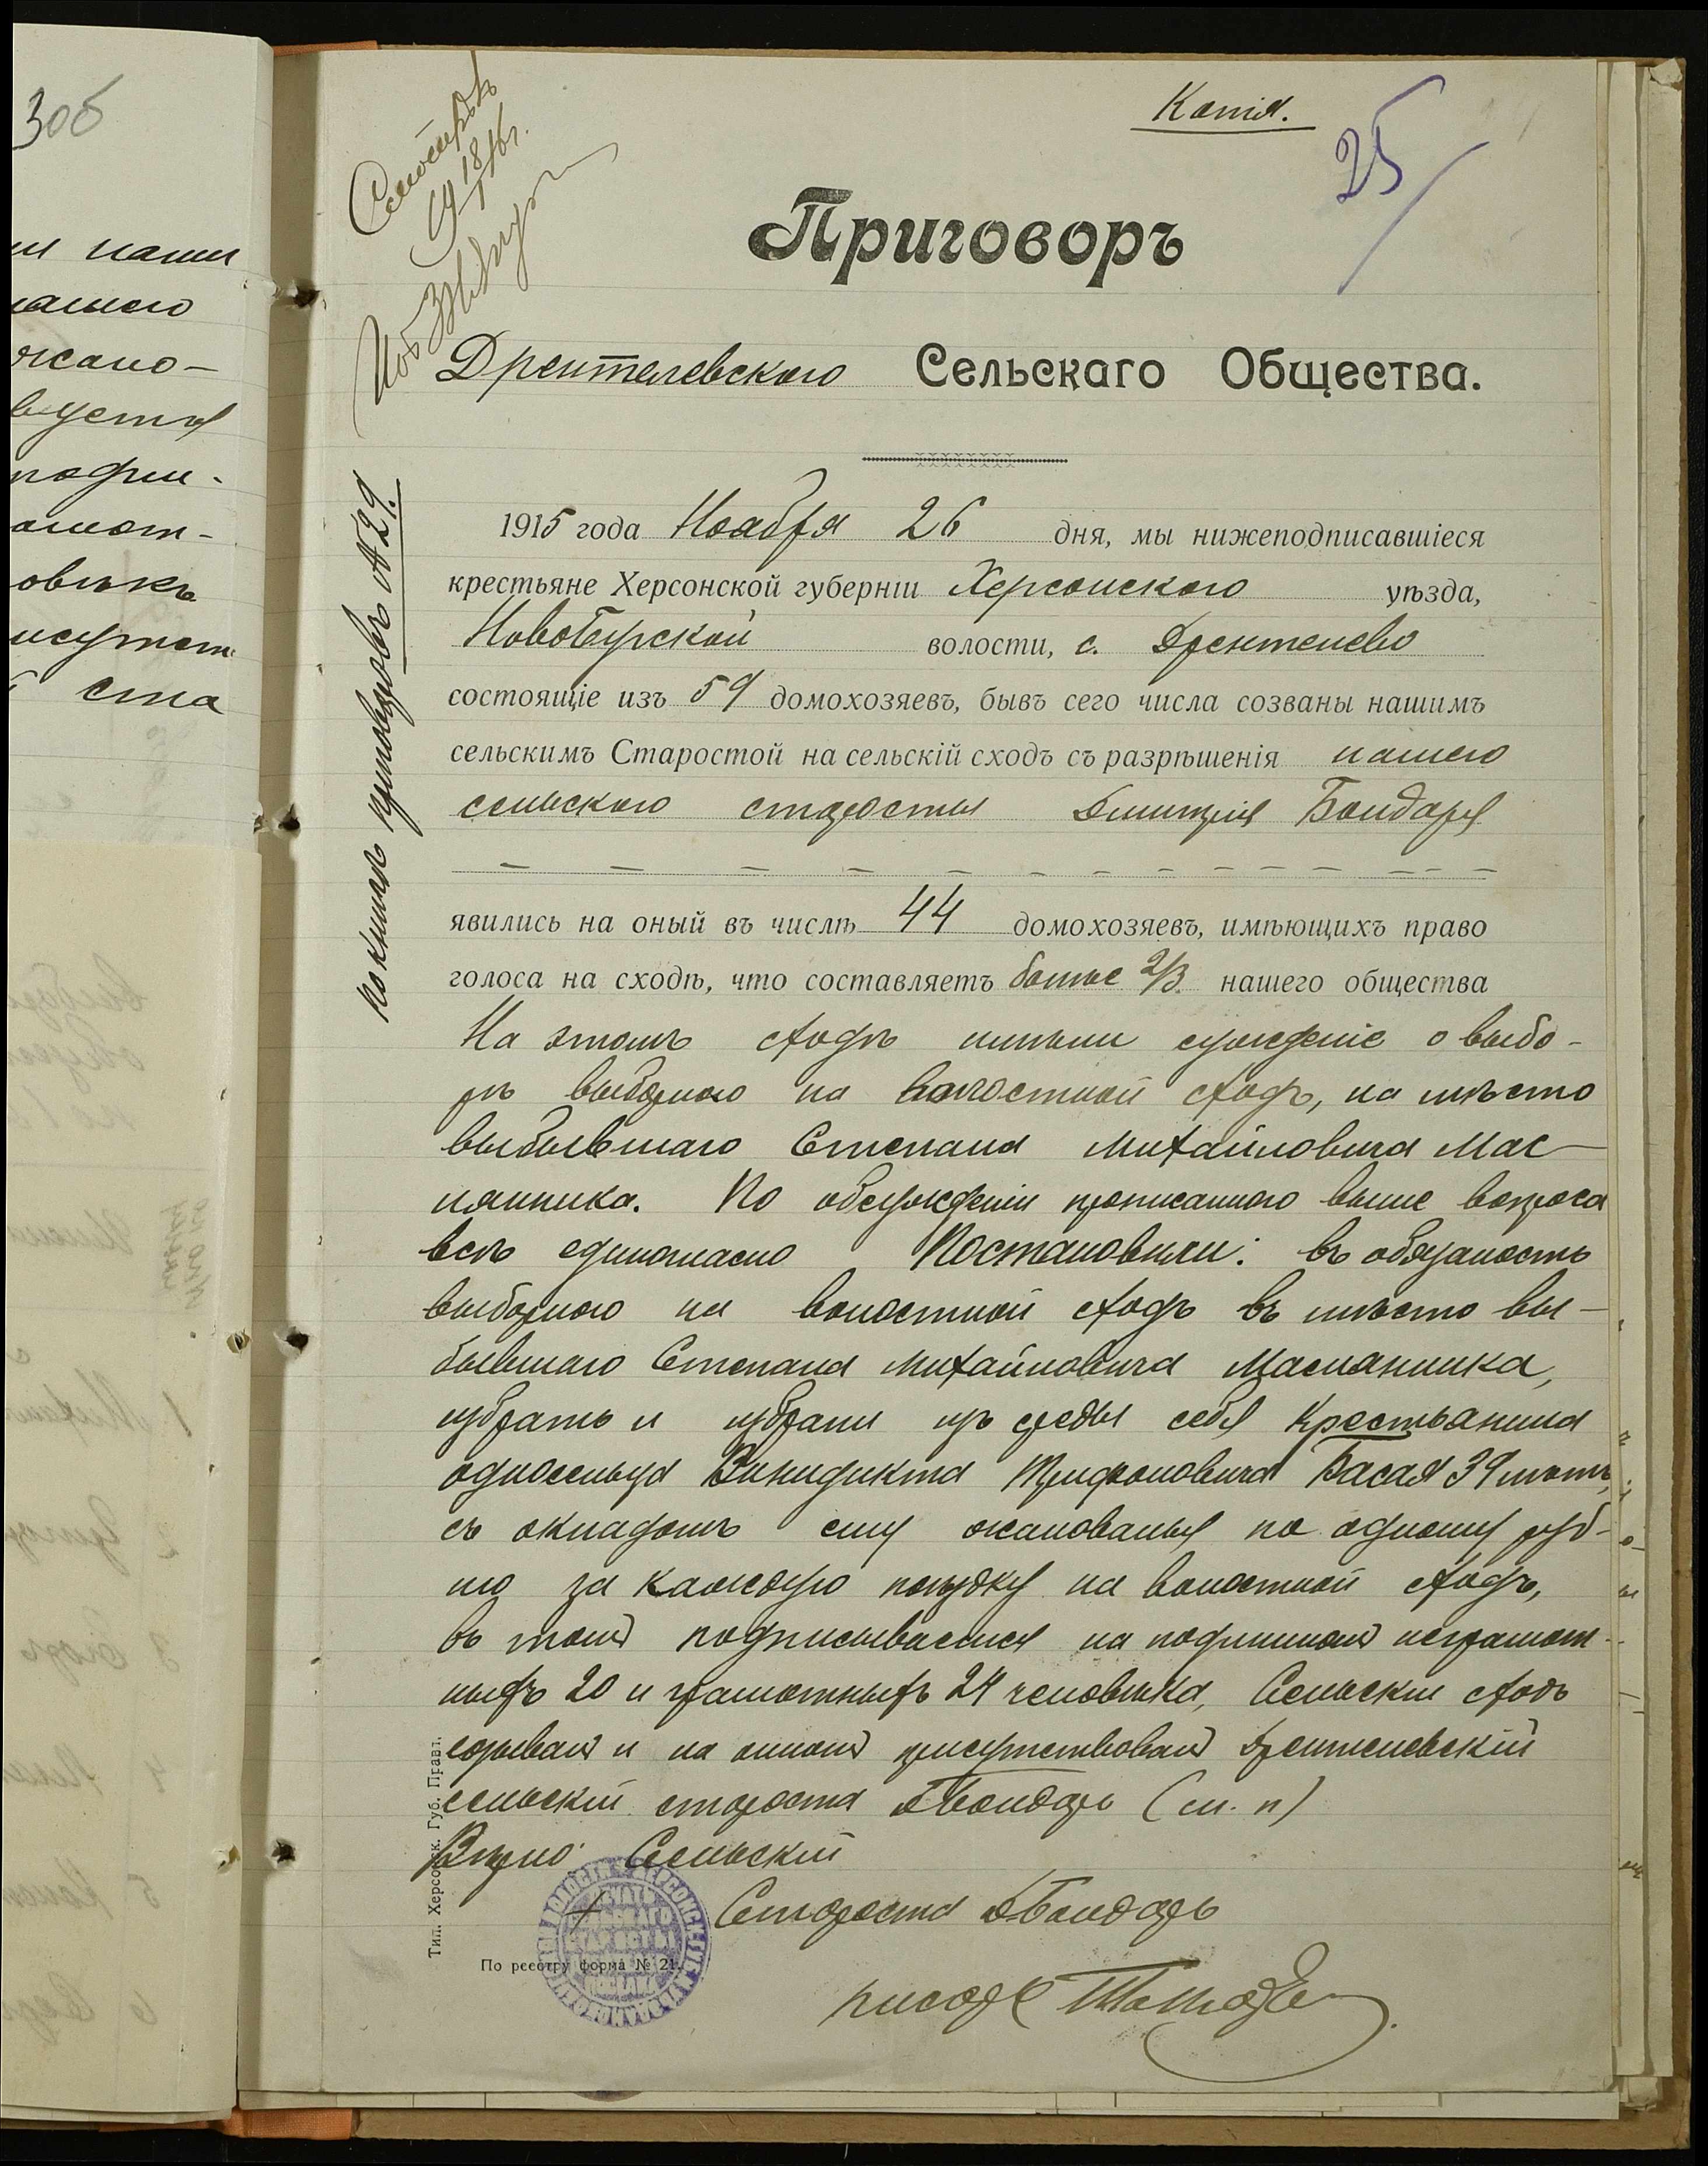 Зоб
ми наши
нашего
жало-
вустя
подли-
амот-
овѣкъ
исутст
ста
Копія.
25
Смотрѣлъ
19 18/I 16 г.
По книгѣ приговоровъ № 29.
Приговоръ
Дрентелевского Сельскаго Общества.
1915 года Ноября 26 дня, мы нижеподписавшіеся
крестьяне Херсонской губерніи Херсонского уѣзда,
Новобурской волости, с. Дрентелево
состоящіе изъ 59 домохозяевъ, бывъ сего числа созваны нашимъ
сельскимъ Старостой на сельскій сходъ съ разрѣшенія нашего
сельского старосты Дмитрія Бондаря
явились на оный въ числѣ 44 домохозяевъ, имѣющихъ право
голоса на сходѣ, что составляетъ более 2/3 нашего общества
На этомъ сходѣ имѣли сужденіе о выбо-
рѣ выборного на волостной сходъ, на мѣсто
выбывшаго Степана Михайловича Мас-
лянника. По обсужденіи прописанного выше вопроса
всѣ единогласно Постановили: въ обязаность
выборного на волостной сходъ въ мѣсто вы-
бывшаго Степана Михайловича Маслянника,
избрать и избрали изъ среды себя крестьянина
односельца Винидикта Трифоновича Басая 39 лѣтъ,
съ окладомъ ему жалованья по одному руб-
лю за каждую поѣздку на волостной сходъ,
въ томъ подписываемся на подлиномъ неграмот-
ныхъ 20 и грамотныхъ 24 человѣка, Сельскій сходъ
созывалъ и на ономъ присутствовалъ Дрентелевскій
сельскій староста ДБондарь (м. п)
Вѣрно: Сельскій
Староста ДБондарь
писарь
По реестру форма № 21.
Тип. Херсонск. Губ. Правл.